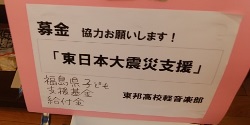 募金 協力お願いします！
「東日本大震災支援」
福島県子ども
支援基金
給付金
東邦高校軽音楽部